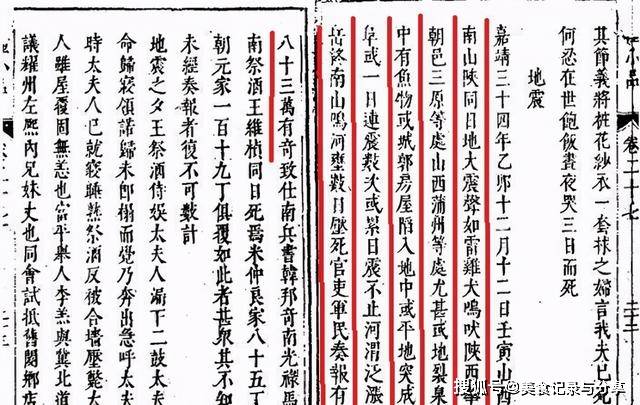 其節義將粧花紗衣一套抹之婦言我夫已死
何忍在世飽飯晝夜哭三日而死
地震
嘉靖三十四年乙卯十二月十二日壬寅山西
南山陝同日地大震聲如雷雞犬鳴吠陝西華
朝邑三原等處山西蒲州等處尤甚或地裂泉
中有魚物或城郭房屋䧟入地中或平地突成
阜或一日連震數次或累日震不止河渭泛漲
岳終南山鳴河壅數日壓死官吏軍民奏報有
八十三萬有奇致仕南兵書韓邦奇南光祿馬
南祭酒王維楨同日死焉米仲良家八十五丁
朝元家一百十九丁俱覆如此者甚衆其不知
未經奏報者復不可數計
地震之夕王祭酒侍娛太夫人漏下二鼓太夫
命歸寢領諾歸未即榻而覺乃奔出急呼太夫
時太夫人已就寢睡熟祭酒反被合墻壓斃太
人雖屋覆固無恙也富平舉人李羔與冀北道
議耀州左熙內兄妹丈也同會試抵舊閿鄉店
小品
卷二十七
搜狐号@美食记录与分享